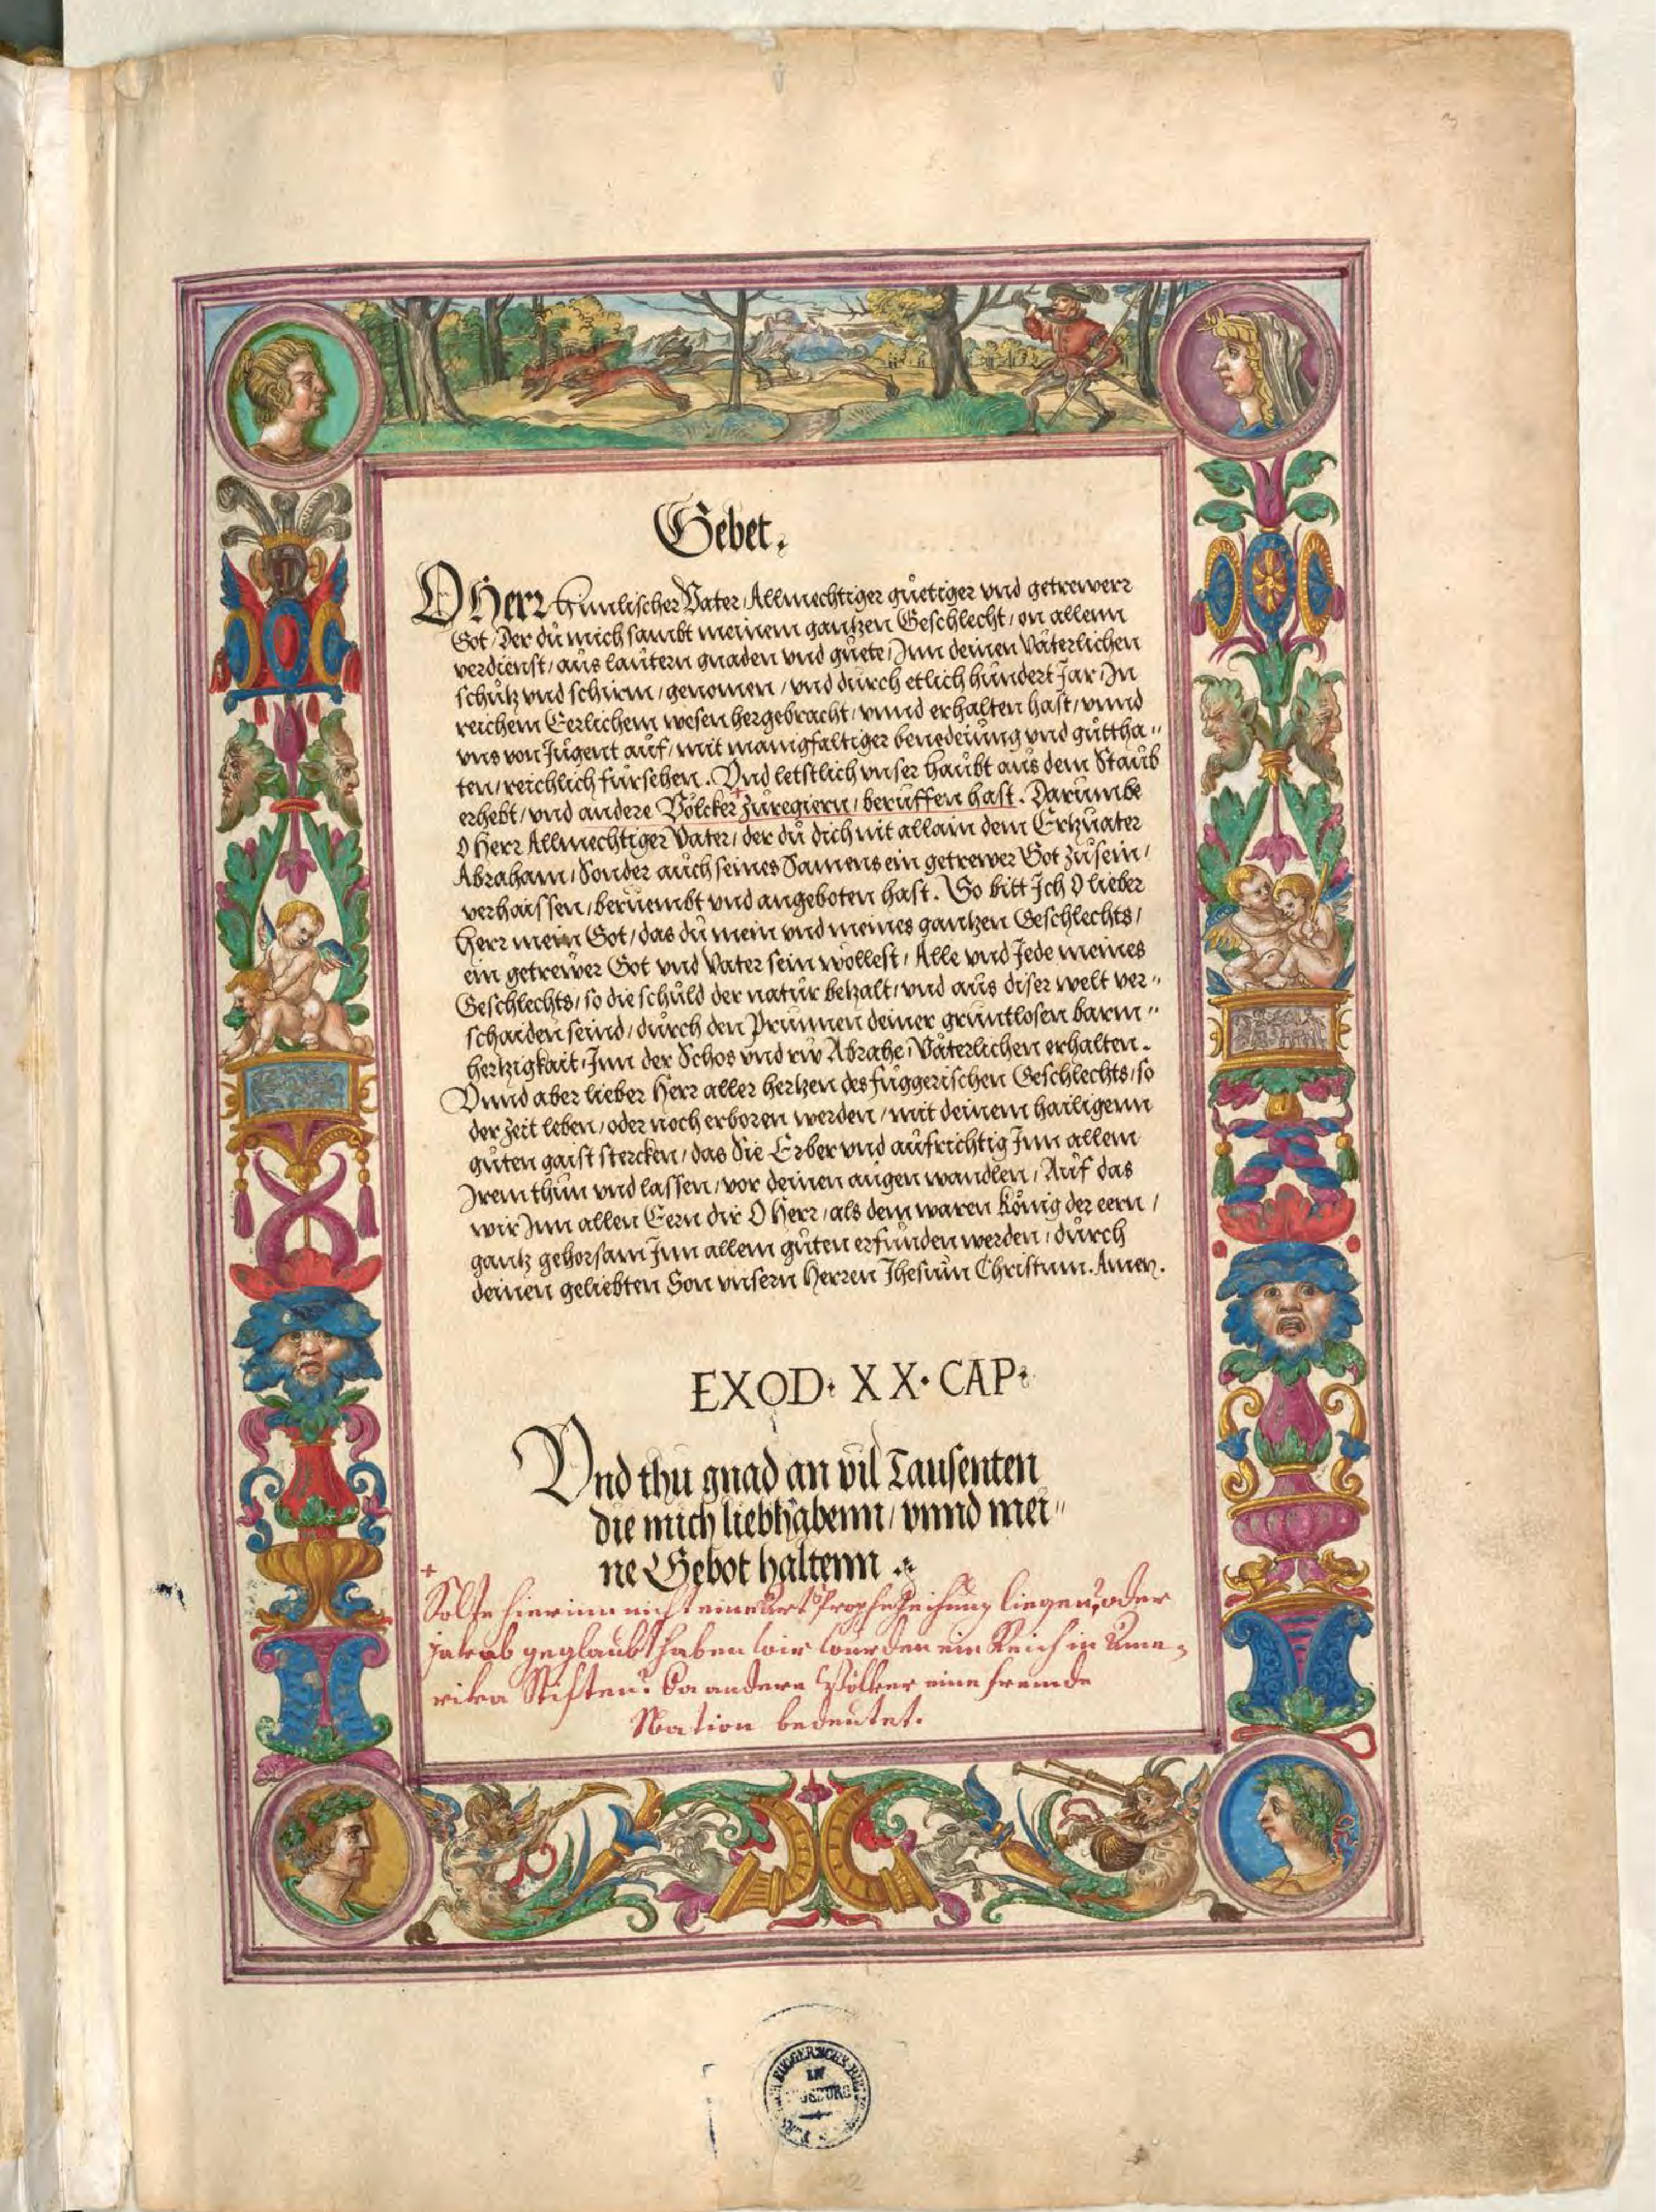 Gebet.
O Herr himlischer Vater, Allmechtiger güetiger vnd getrewerr
Got, Der dů mich sambt meinem gantzen Geschlecht, on allem
verdienst, aůs lautern gnaden vnd güete, Inn deinen Väterlichen
schůtz vnd schirm, genomen, vnd důrch etlich hůndert Jar, In
reichem Eerlichem wesen hergebracht, vnnd erhalten hast, vnnd
vns von Jůgent aůf, mit manigfaltiger benedeiůng vnd gůttha"
ten, reichlich fürsehen. Vnd letstlich vnser haůbt aůs dem Staůb
erhebt, vnd andere Völcker + zůregiern, berůffen hast. Darůmbe
O Herr Allmechtiger Vater, der dů dich nit allain dem Ertzůater
Abraham, Sonder aůch seines Samens ein getrewer Got zůsein,
verhaissen, berüembt vnd angeboten hast. So bitt Ich O lieber
Herr mein Got, das dů mein vnd meines gantzen Geschlechts,
ein getrewer Got vnd Vater sein wöllest, Alle vnd Jede meines
Geschlechts, so die schůld der natůr betzalt, vnd aůs diser welt ver"
schaiden seind, důrch den Průnnen deiner grůntlosen barm"
hertzigkait, Inn der Schos vnd růw Abrahe, Väterlichen erhalten.
Vnnd aber lieber Herr aller hertzen des fůggerischen Geschlechts, so
der zeit leben, oder noch erboren werden, mit deinem hailigenn
gůten gaist stercken, das Sie Erber vnd aůfrichtig Inn allem
Irem thůn vnd lassen, vor deinen aůgen wandlen, Aůf das
wir Inn allen Eern dir O Herr, als dem waren König der eern,
gantz gehorsam Inn allem gůten erfůnden werden, důrch
deinen geliebten Son vnsern Herren Jhesům Christum. Amen.
EXOD. XX. CAP.
Vnd thu gnad an vil Tausenten
die mich liebhabenn, vnnd mei"
ne Gebot haltenn.
+
Solte hierinn nicht eine Art Prophezeihung liegen, oder
jakob geglaubt haben wir würden ein Reich in Ame-
rika Stiften? Da andere Völker eine fremde
Nation bedeutet.
FUGGERSCHE
IN
AUGSBURG